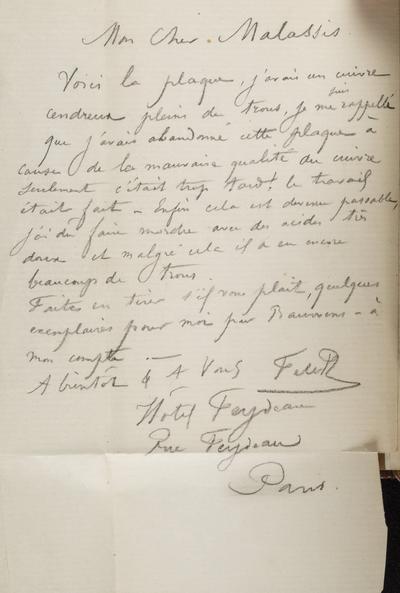 Mon Cher Malassis.
Voici la plaque, j'avais un cuivre
cendreux pleins de trous, je me suis rappellé
que j'avais abandonné cette plaque à
cause de la mauvaise qualité du cuivre
seulement c'était trop tard. le travail
était fait – Enfin cela est devenu passable,
j'ai du faire mordre avec des acides très
doux et malgré cela il a eu encore
beaucoups de trous.
Faites en tirer s'il vous plait, quelques
exemplaires pour moi par – à
mon compte —
A bientôt & A Vous
Hôtel Feydeau
Rue Feydeau
Paris.